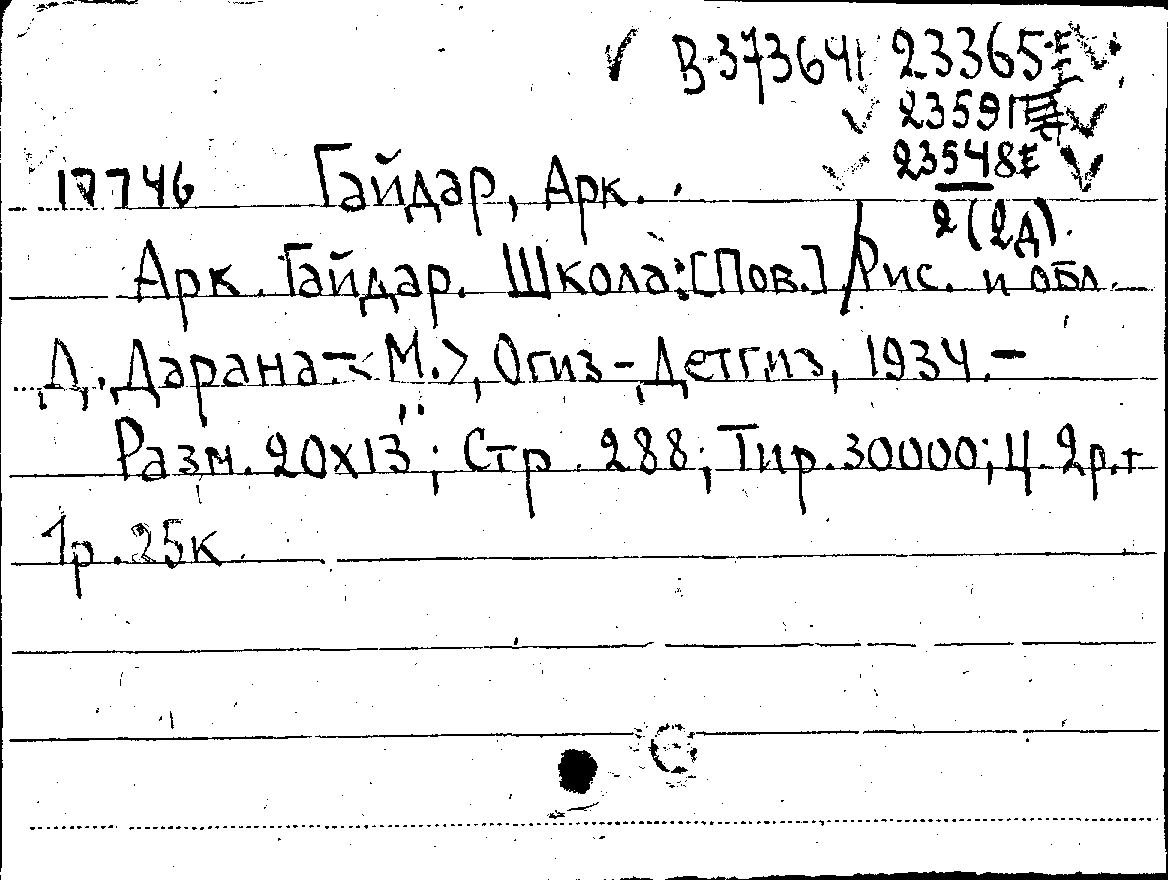 В-373641 23365Е
23591
23548Е
17746 Гайдар, Арк.
2(2д).
Арк. Гайдар. Школа: [Пов.] / Рис. и обл.
Д. Дарана. - <М.>, Огиз - Детгиз, 1934. -
Разм. 20х13; Стр. 288; Тир. 30000; Ц. 2р. +
1р. 25к.